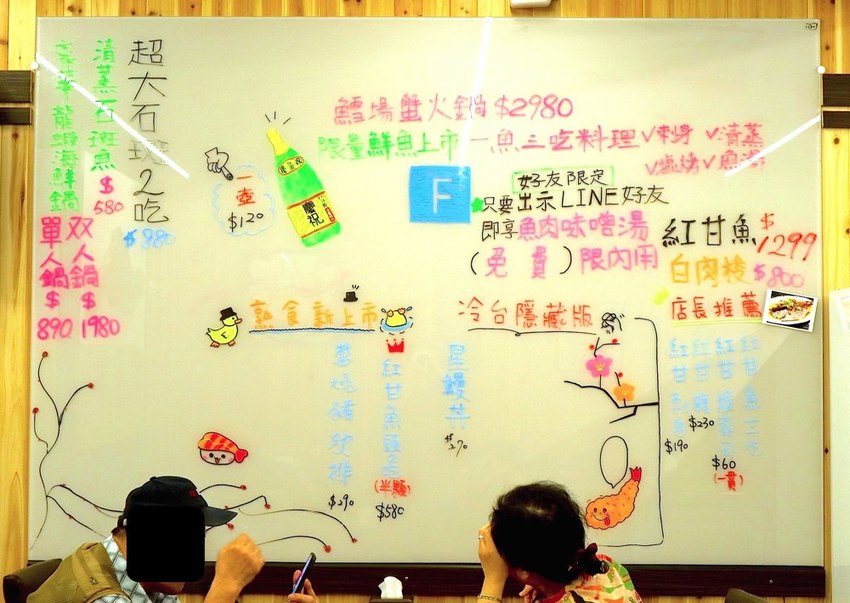 鱈場蟹火鍋$2980
限量鮮魚上市 一魚三吃料理 ∨刺身 ∨清蒸
好友限定
只要出示LINE好友
即享魚肉味噌湯
(免費)限內用
F
紅甘魚$1299
白肉 $800
店長推薦
超大石斑2吃
$880
清蒸石斑魚
$580
豪華龍蝦海鮮鍋
双人鍋$1980
單人鍋$890
一壺
$120
慶祝
熟食新上市
紅甘魚頭
(半顆)
$580
$290
冷台隱藏版
星鰻丼
$270
紅甘魚三吃
紅甘
$60
(一貫)
紅甘
$230
紅甘
$190